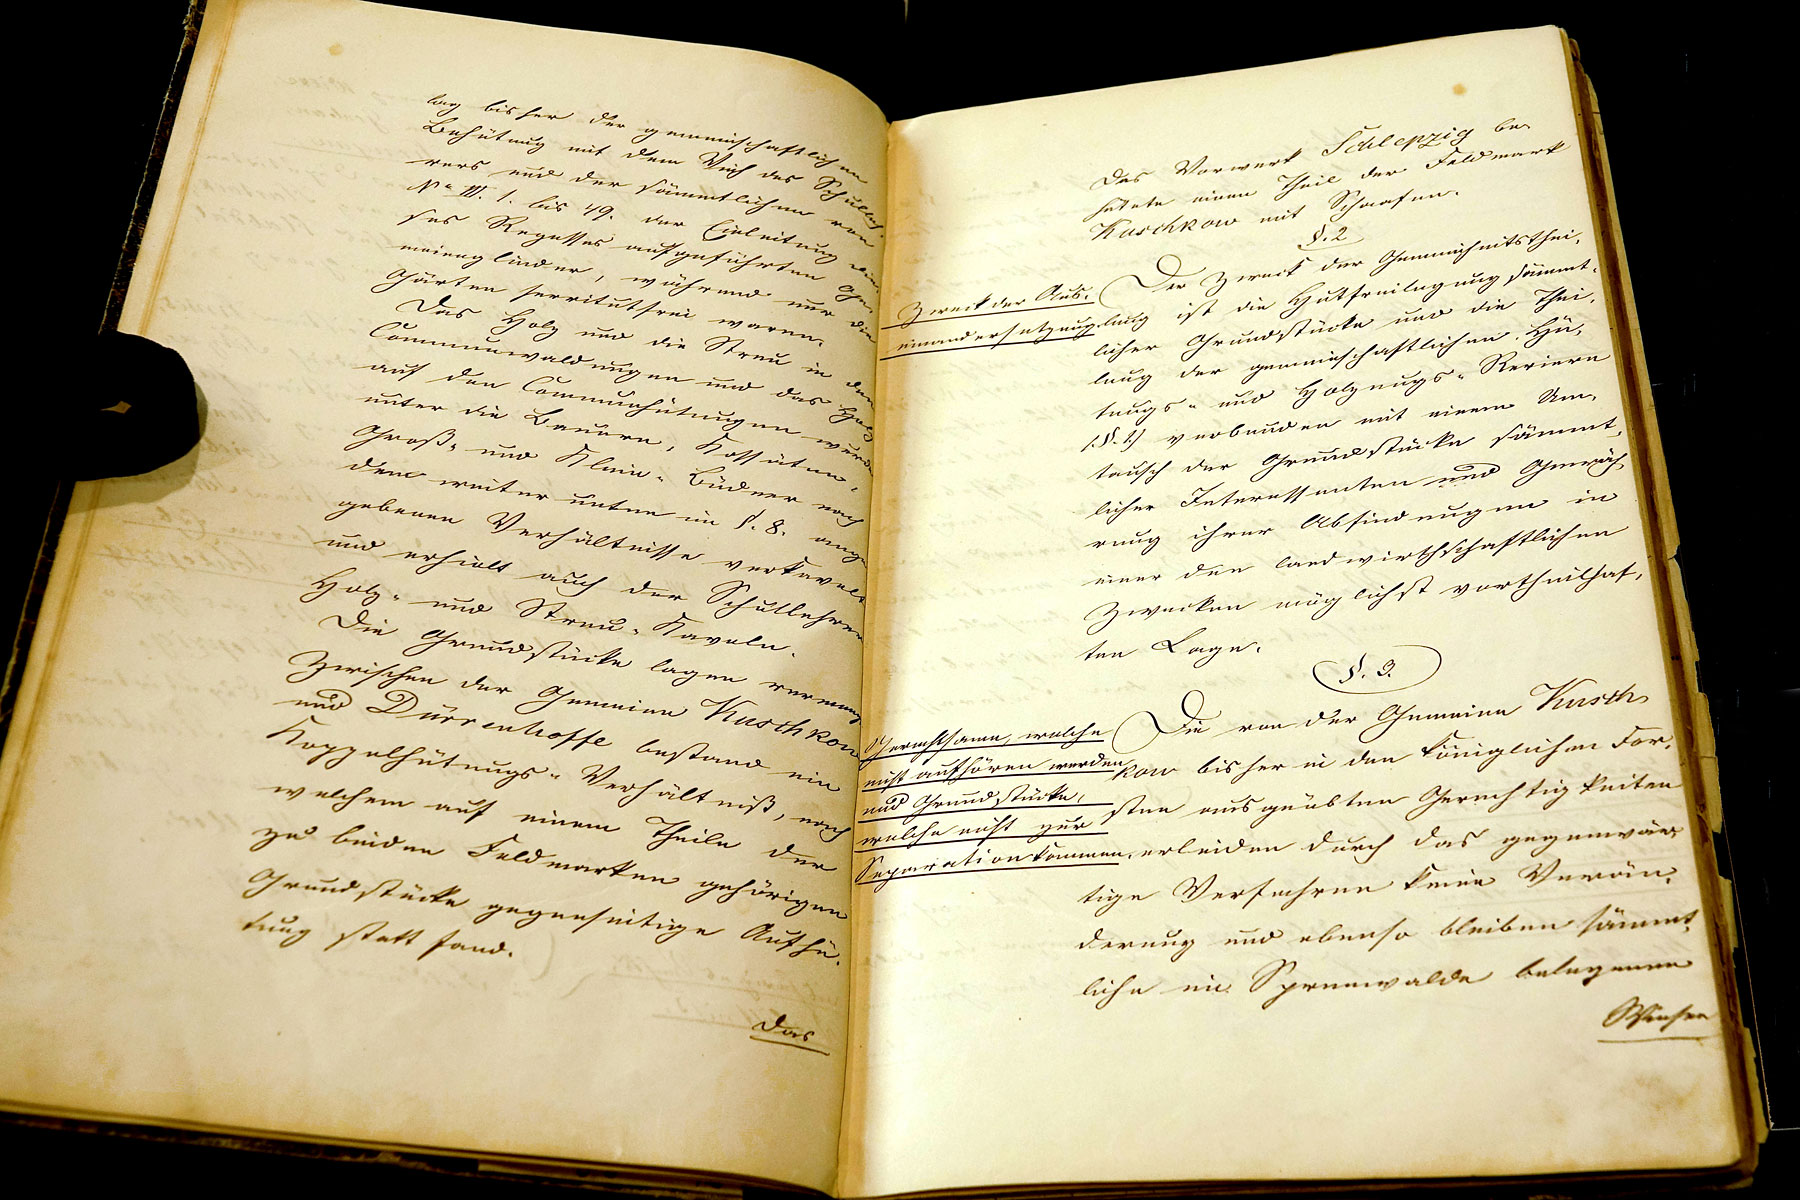 lag bisher der gemeinschaftlichen
Behütung mit dem Vieh des Schulleh-
rers und der sämmtlichen von
No III. 1. bis 49. der Einleitung die-
ses Rezesses aufgeführten Ge-
meineglieder, während nur die
Gärten servitutfrei waren.
Das Holz und die Streu in den
Communwaldungen und das Holz
auf den Communhütungen wurde
unter die Bauern, Kossäten,
Groß- und Klein-Büdner nach
dem weiter unten im §. 8. ange-
gebenen Verhältnisse verkavelt
und erhielt auch der Schullehrer
Holz- und Streu-Kaveln.
Die Grundstücke lagen vermengt
Zwischen der Gemeine Kuschkow
und Dürrenhoffe bestand ein
Koppelhütungs-Verhältniß, nach
welchem auf einem Theile der
zu beiden Feldmarken gehörigen
Grundstücke gegenseitige Aufhü-
tung statt fand.
Das
Das Vorwerk Schlepzig be-
hütete einen Theil der Feldmark
Kuschkow mit Schaafen.
§. 2
Zweck der Aus-
einandersetzung
Der Zweck der Gemeinheitsthei-
lung ist die Hutfreilegung sämmt-
licher Grundstücke und die Thei-
lung der gemeinschaftlichen Hü-
tungs- und Holzungs-Reviere
(§. 1.) verbunden mit einem Um-
tausch der Grundstücke sämmt-
licher Interessenten und Gewäh-
rung ihrer Abfindungen in
einer den landwirthschaftlichen
Zwecken möglichst vortheilhaf-
ten Lage.
§. 3.
Gerechtsame, welche
nicht aufhören werden
und Grundstücke,
welche nicht zur
Separation kommen.
Die von der Gemeine Kusch-
kow bisher in den Königlichen For-
sten ausgeübten Gerechtigkeiten
erleiden durch das gegenwär-
tige Verfahren keine Verän-
derung und ebenso bleiben sämmt-
liche im Spreewalde belegenen
Wiesen